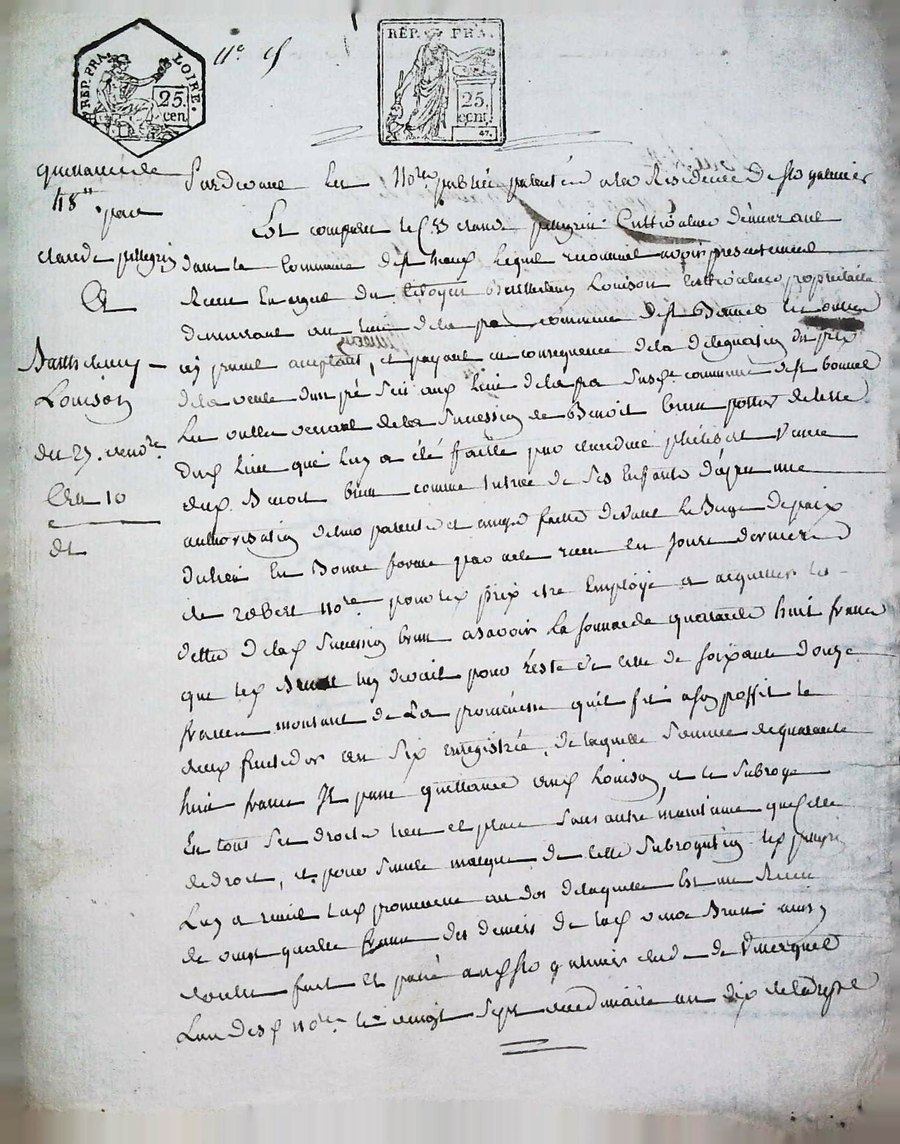 REP. FRA. LOIRE.
25 cen.
n.° 5
REP. FRA.
25 cent.
47.
quittance de
48
par
claude pellegrin
Et
Barthelemy
Louison
du 27. vend.re
an 10
dt
Pardevant les no.re public patenté a la Residence de st galmier
Est comparu le claude pellegrin Cultivateur demeurant
dans la Commune de st lequel reconnait avoir presentement
Recu en argent du Citoyen Barthelemy Louison Cultivateur proprietaire
demeurant au lieu de la commune de st Bonnet les
cy present acceptant, et payant en consequence de la delegation du prix
de la vente d'un pré scis aux lieu de la commune de st bonnet
les venant de la Succession de Benoit brun
dud lieu que luy a été faitte par veuve
dud Benoit brun comme tutrice de ses Enfants d'apres une
authorisation de parents et amys faitte devant le Juge de paix
du lieu En Bonne forme par acte recu les jours derniers
de robert no.re pour led prix etre Employé a acquitter les
dettes de lad Succession brun asavoir la somme de quarante huit francs
que led luy devait pour reste de celle de soixante douze
francs montant de la promesse qu'il fit a son proffit le
deux fructidor an six enregistrée, de laquelle Somme de quarante
huit francs Il passe quittance aud Louison, et le Subroge
En tout ses droits lieu et place sans autre maintenue que celle
de droit, et pour seule marque de cette Subrogation led pellegrin
Luy a remit lad promesse au dos de laquelle Est un Recu
de vingt quatre francs des deniers de lad veuve Brun ainsy
fait et passé aud st galmier de
L'an dud no.re le vingt sept vendemiaire an dix de la